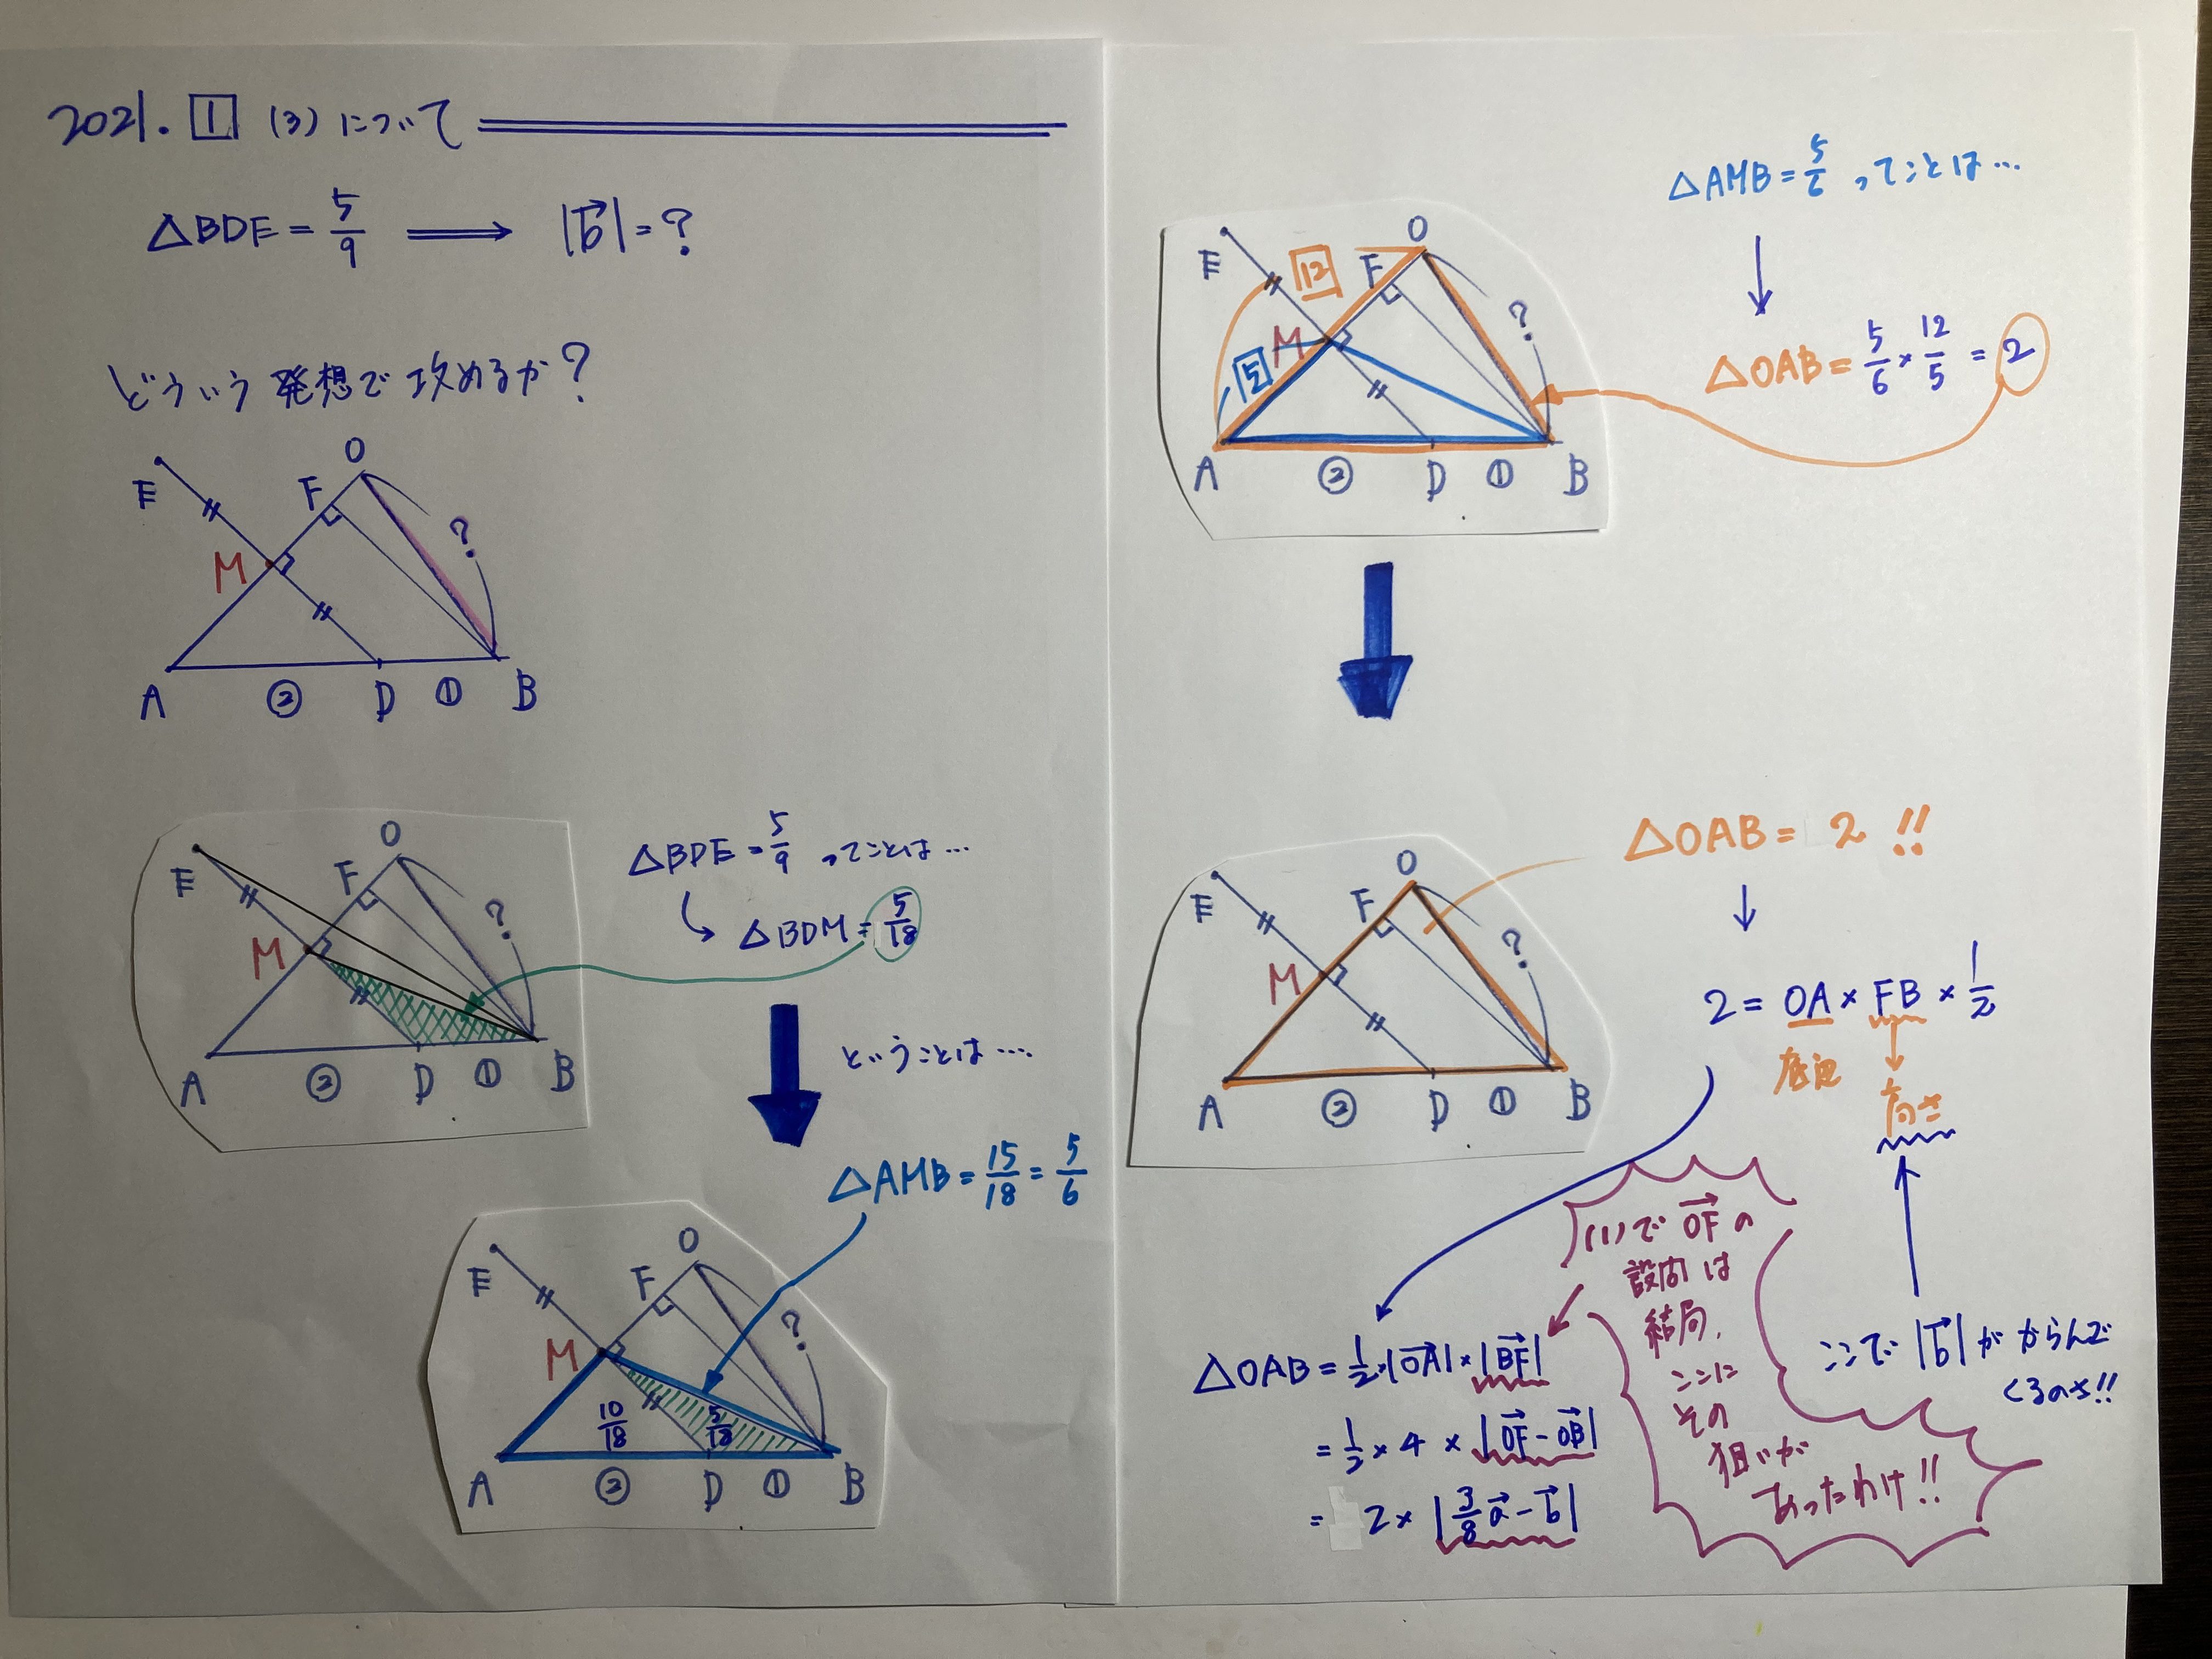 2021. 1 (3) について
△BDE = 5/9 ⟹ |b→| = ?
どういう発想で攻めるか?
O
E
F
?
M
A ② D ① B
O
E
F
?
M
A ② D ① B
△BDE = 5/9 ってことは…
△BDM = 5/18
ということは…
△AMB = 15/18 = 5/6
O
E
F
?
M
10/18 5/18
A ② D ① B
△AMB = 5/6 ってことは…
O
E
12
F
?
M
5
A ② D ① B
△OAB = 5/6 × 12/5 = 2
△OAB = 2 !!
O
E
F
?
M
A ② D ① B
2 = OA × FB × 1/2
底辺
高さ
(1)で OF→ の
設問は
結局、
ここに
その
狙いが
あったわけ!!
ここで |b→| がからんで
くるのさ!!
△OAB = 1/2 × |OA→| × |BF→|
= 1/2 × 4 × |OF→ - OB→|
= 2 × |3/8 a→ - b→|